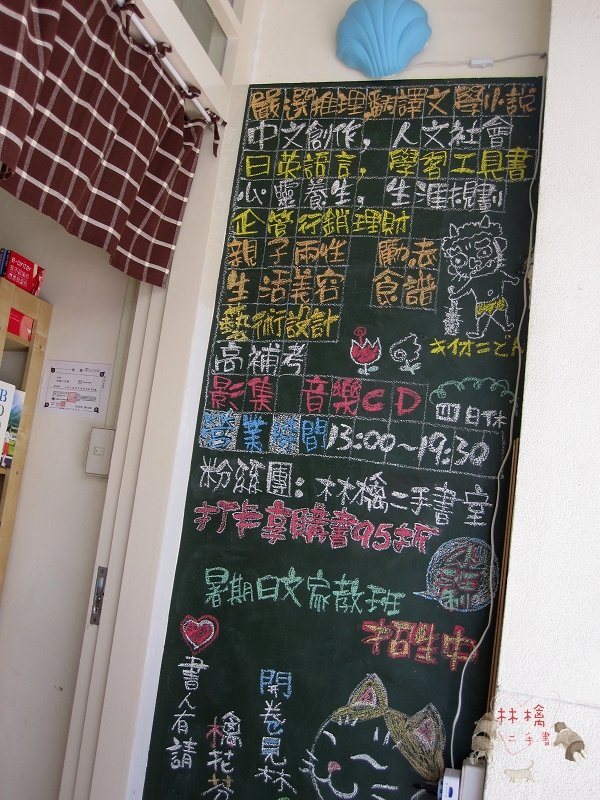 嚴選推理翻譯文學小說
中文創作，人文社會
日英語言，學習工具書
心靈養生。生涯規劃
企管行銷理財
親子兩性 勵志
生活美容 食譜
藝術設計
高補考
影集 音樂CD
四日休
營業時間13:00~19:30
粉絲團：林檎二手書室
打卡享購書95折
暑期日文家教班
招生中
書人有請
開卷見林
檎花芬
林檎
二手書